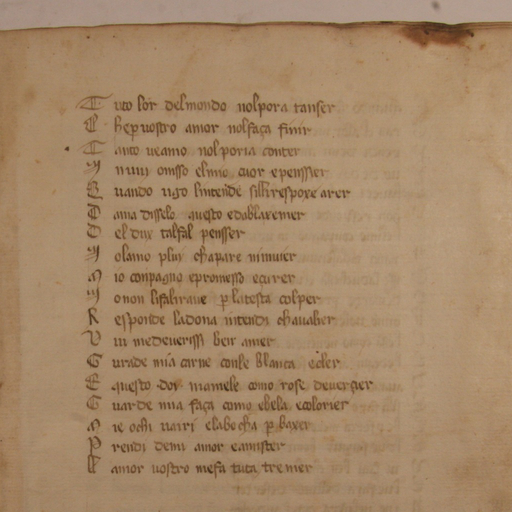 T uto lor delmondo nolpora tanser
E hep uostro amor nolfaça finir
T anto ueamo nolporia conter
M uui onisso elmio cuor epenssier
Q uando ugo lintende silli respoxe arer
D ama disselo questo edablaxemer
D el dux talfal pensser
N olamo plux chapare nimuier
M io conpagno epromesso eçurer
N onon lifaliraue p latesta colper
R esponde ladona intendi chaualier
V ui medeuerissi ben amer
G uarde mia carne conse blanca ecler
E questo doi mamele como rose deuerçier
G uarde mia faça como ebela ecolorier
M ie ochi uairi elabocha p baxer
P rendi demi amor eamister
L amor uostro mefa tuta tremer